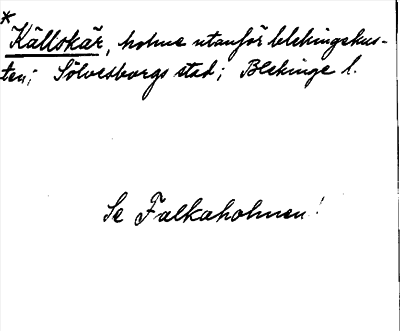 *
Källskär, holme utanför blekingskus-
ten; Sölvesborgs stad; Blekinge l.
Se Falkaholmen!